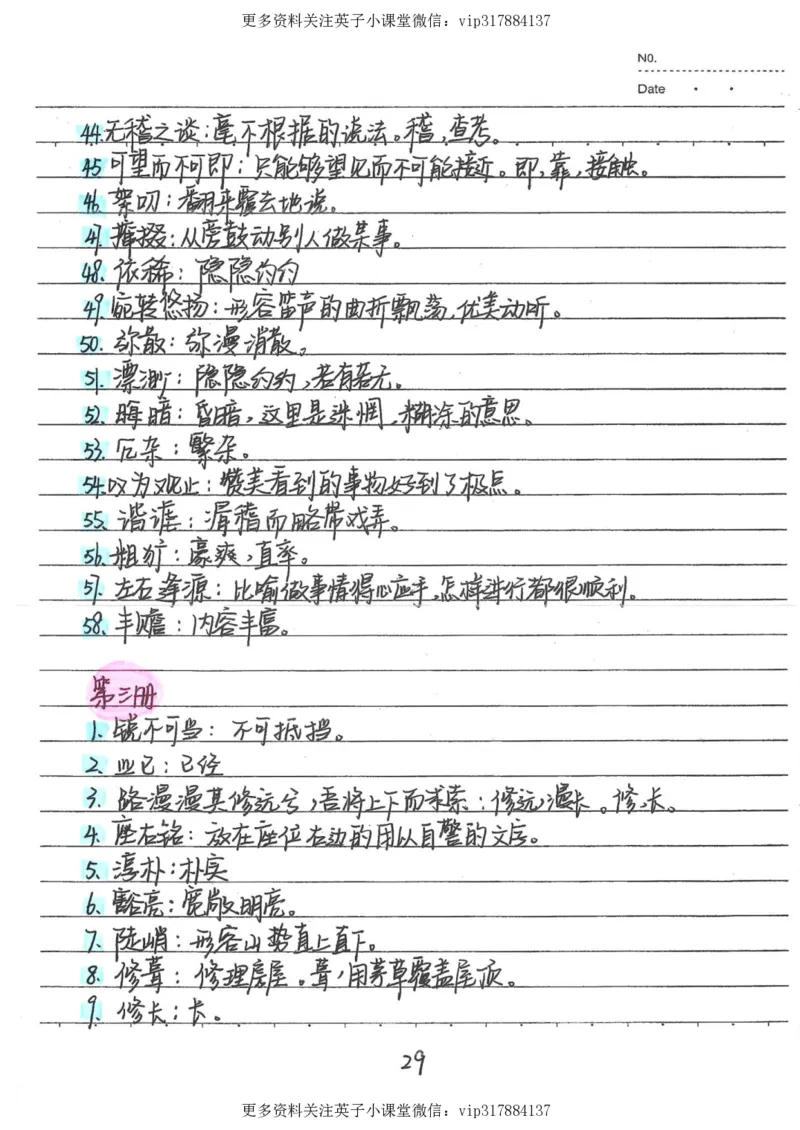 更多资料关注英子小课堂微信：vip317884137
N0.
Date
44.无稽之谈：毫不根据的说法。稽，查考。
45 可望而不可即：只能够望见而不可能接近。即，靠，接触。
46. 絮叨：翻来覆去地说。
47. 撺掇：从旁鼓动别人做某事。
48. 依稀：隐隐约约
49. 宛转悠扬：形容笛声的曲折飘荡，优美动听。
50. 弥散：弥漫消散。
51. 漂渺：隐隐约约，若有若无。
52. 晦暗：昏暗，这里是迷惘，糊涂的意思。
53. 冗杂：繁杂。
54.叹为观止：赞美看到的事物好到了极点。
55. 诙谐：滑稽而略带戏弄。
56. 粗犷：豪爽，直率。
57. 左右逢源：比喻做事情得心应手，怎样进行都很顺利。
58. 丰赡：内容丰富。
第三册
1. 锐不可当：不可抵挡。
2. 业已：已经
3. 路漫漫其修远兮，吾将上下而求索：修远，漫长。修，长。
4. 座右铭：放在座位右边的用以自警的文房。
5. 淳朴：朴实
6. 豁亮：宽敞明亮。
7. 陡峭：形容山势直上直下。
8. 修葺：修理房屋。葺，用茅草覆盖屋顶。
9. 修长：长。
29
更多资料关注英子小课堂微信：vip317884137